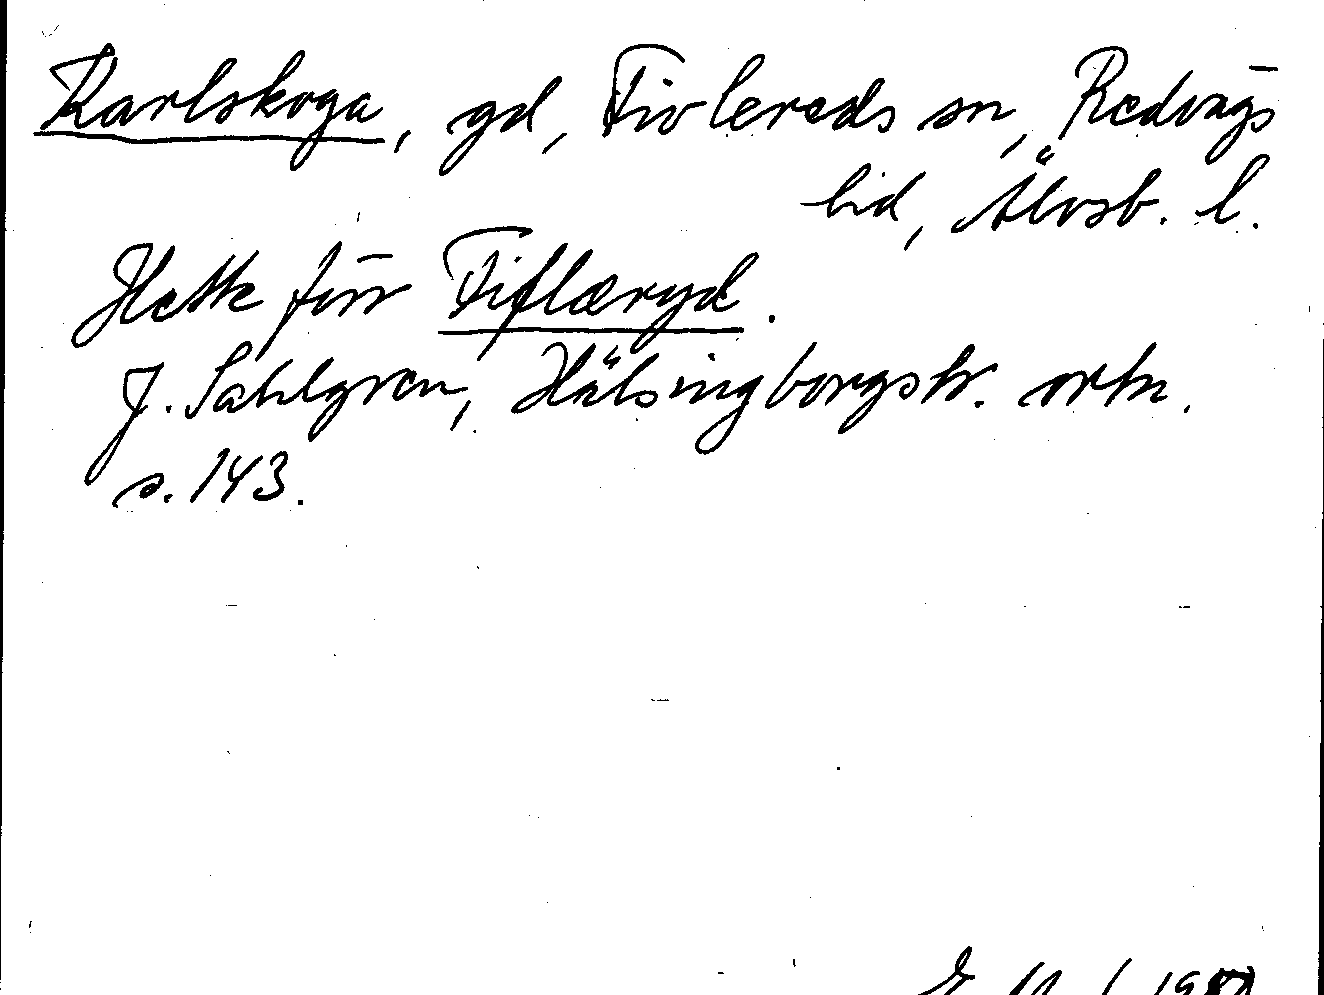 Karlskoga, gd, Tivlereds sn, Redvägs
hd, Älvsb. l.
Hette förr Tiflæryd.
J. Sahlgren, Hälsingborgstr. ortn.
s. 143.